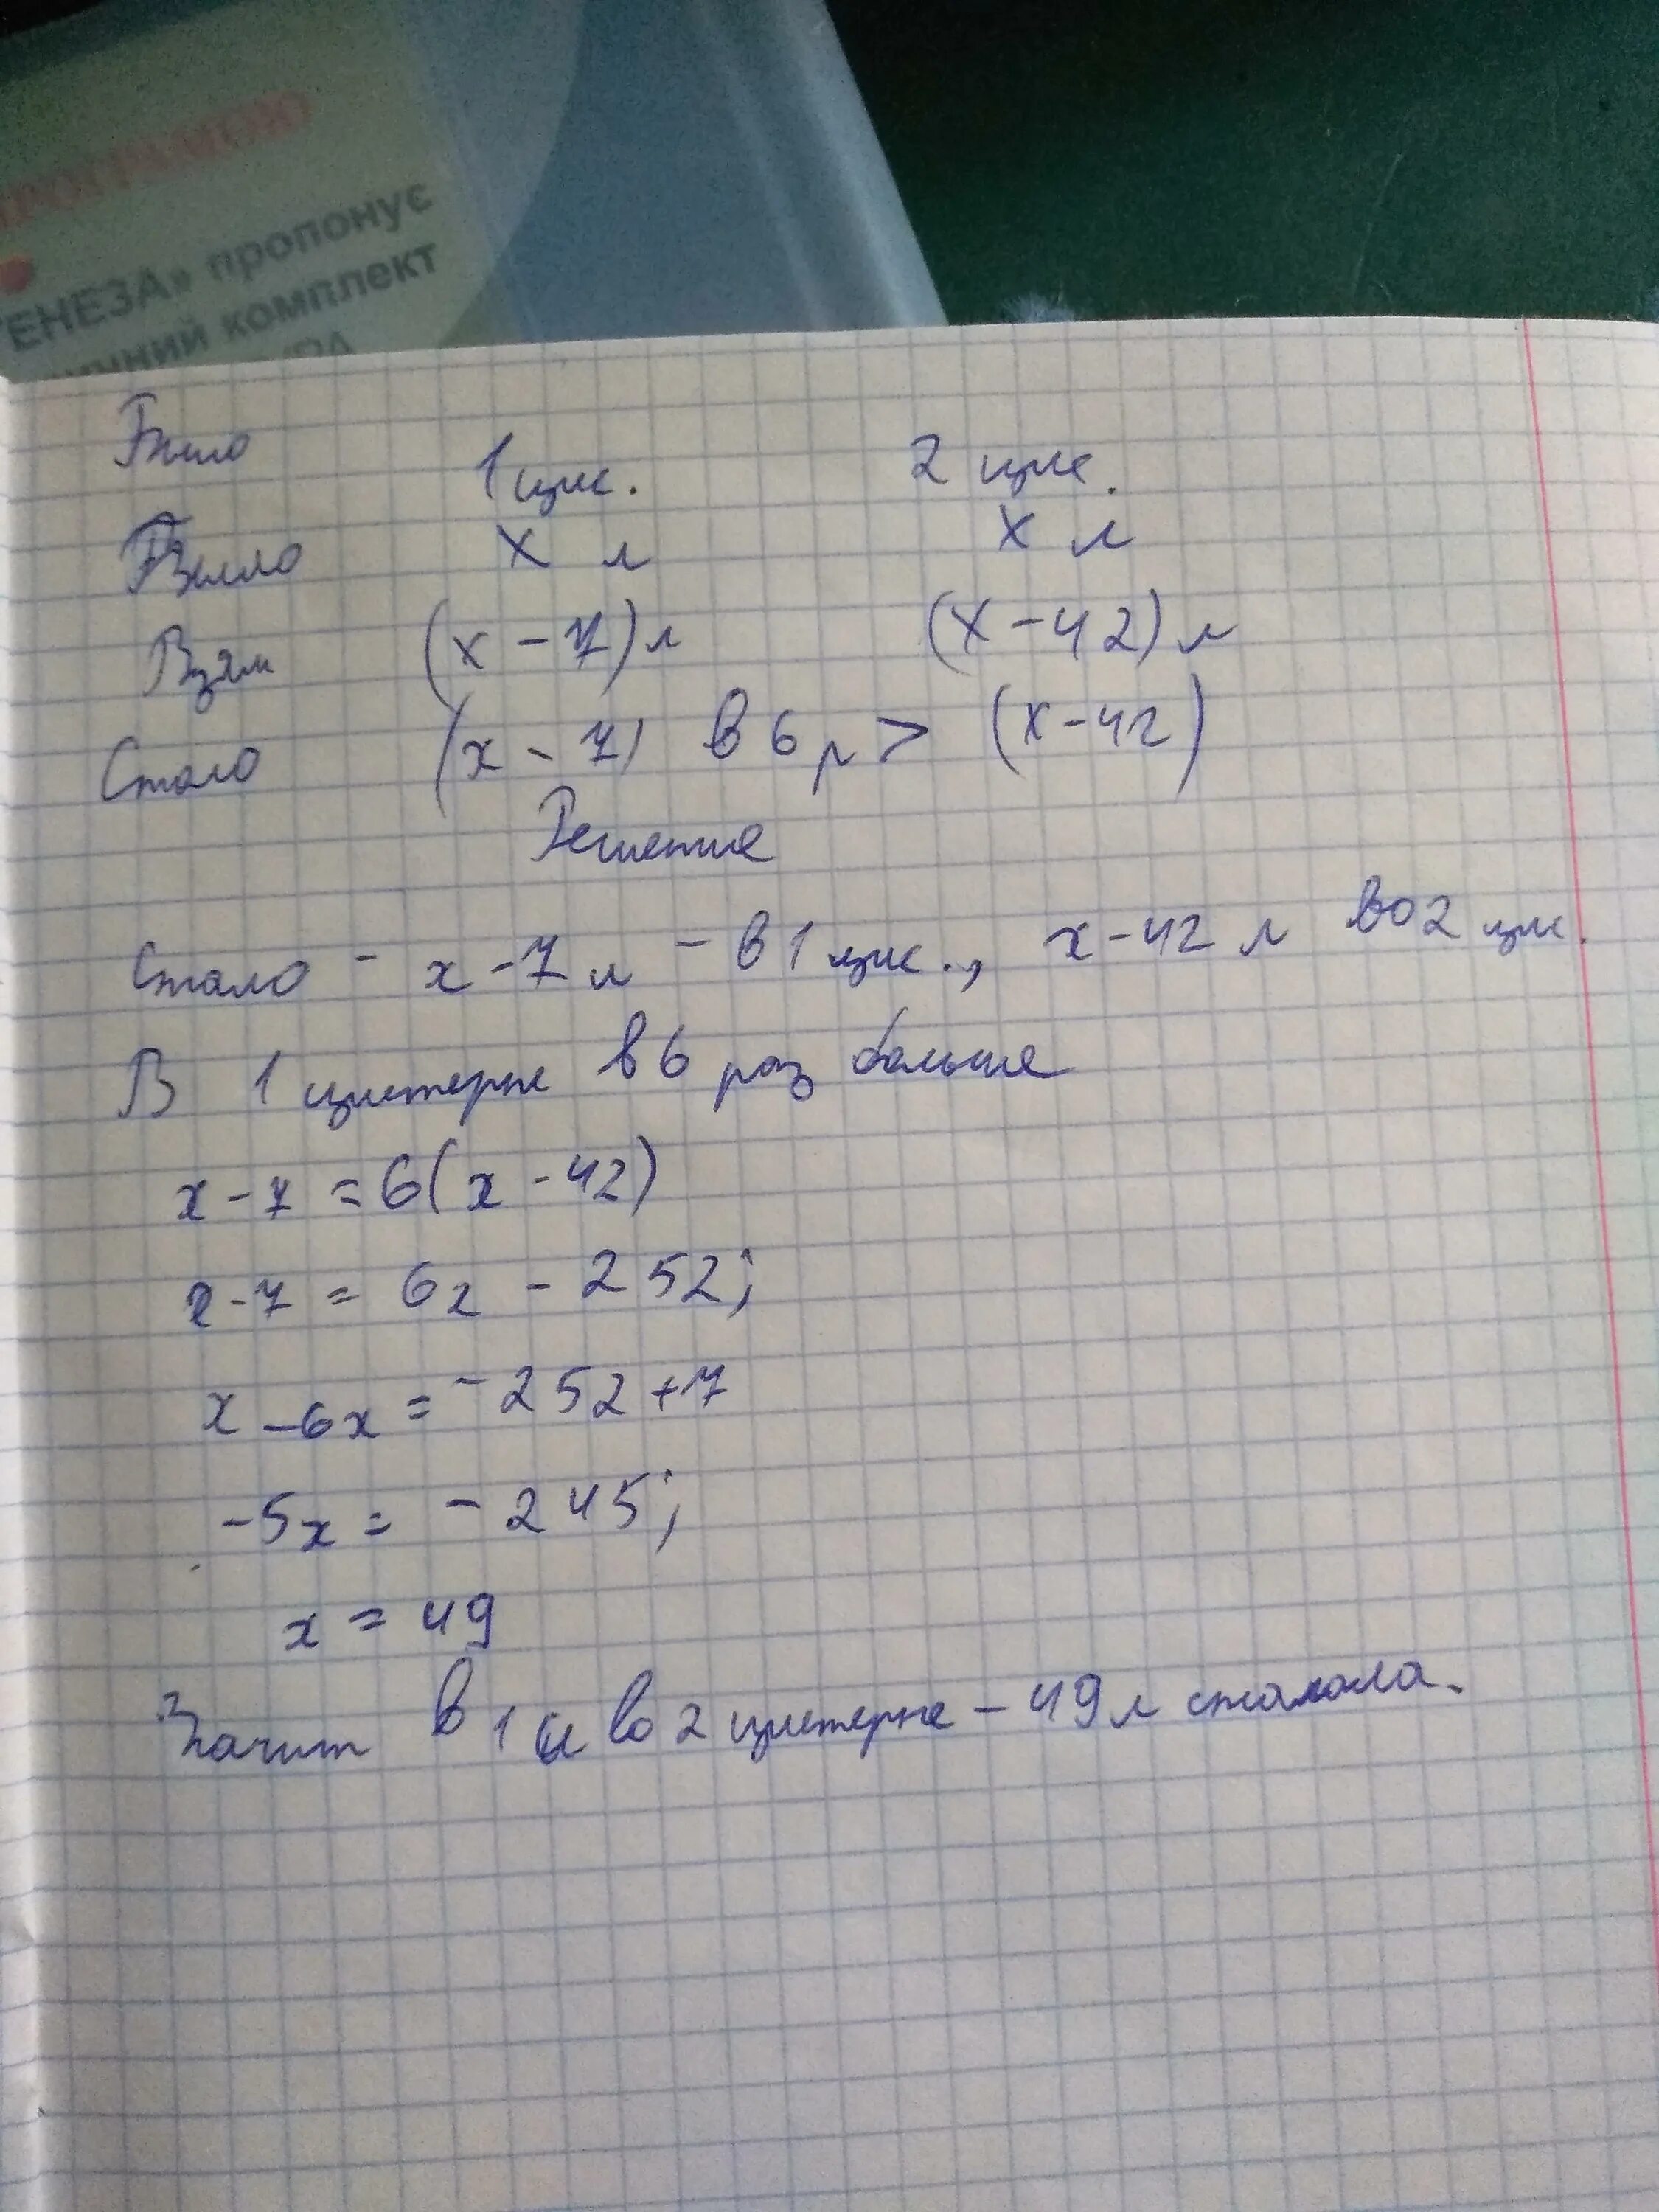 ПРОГРАМОЮ
ГЕНЕЗА» пропонує
комплект
Было
1 цис. 2 цис.
Было x л x л
Взяли (x - 7) л (x - 42) л
Стало (x - 7) в 6 р > (x - 42)
Решение
Стало - x - 7 л - в 1 цис., x - 42 л во 2 цис.
В 1 цистерне в 6 раз больше
x - 7 = 6(x - 42)
x - 7 = 6x - 252;
x - 6x = -252 + 7
-5x = -245;
x = 49
Значит в 1 и во 2 цистерне - 49 л